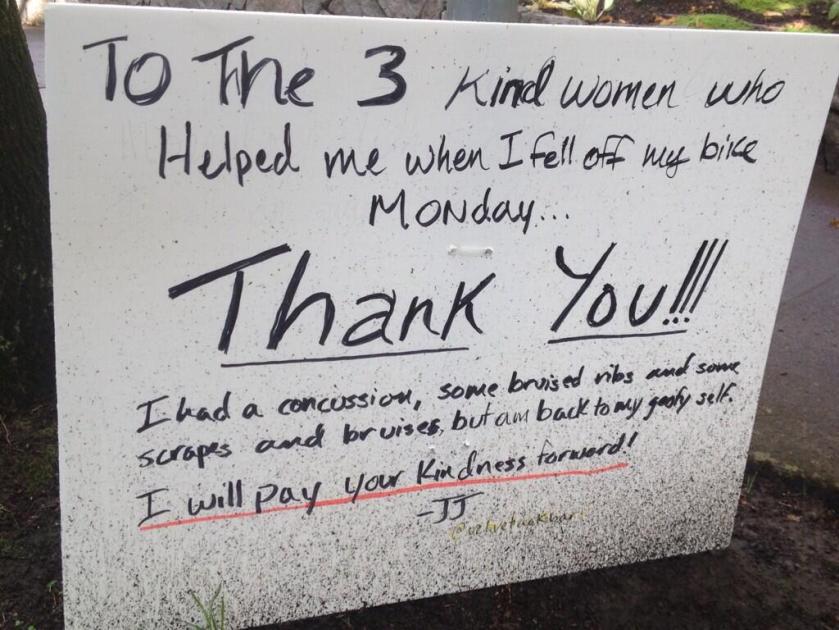 To The 3 Kind women who
Helped me when I fell off my bike
Monday...
Thank You!!!
I had a concussion, some bruised ribs and some
scrapes and bruises, but am back to my goofy self.
I will pay your kindness forward!
-JJ